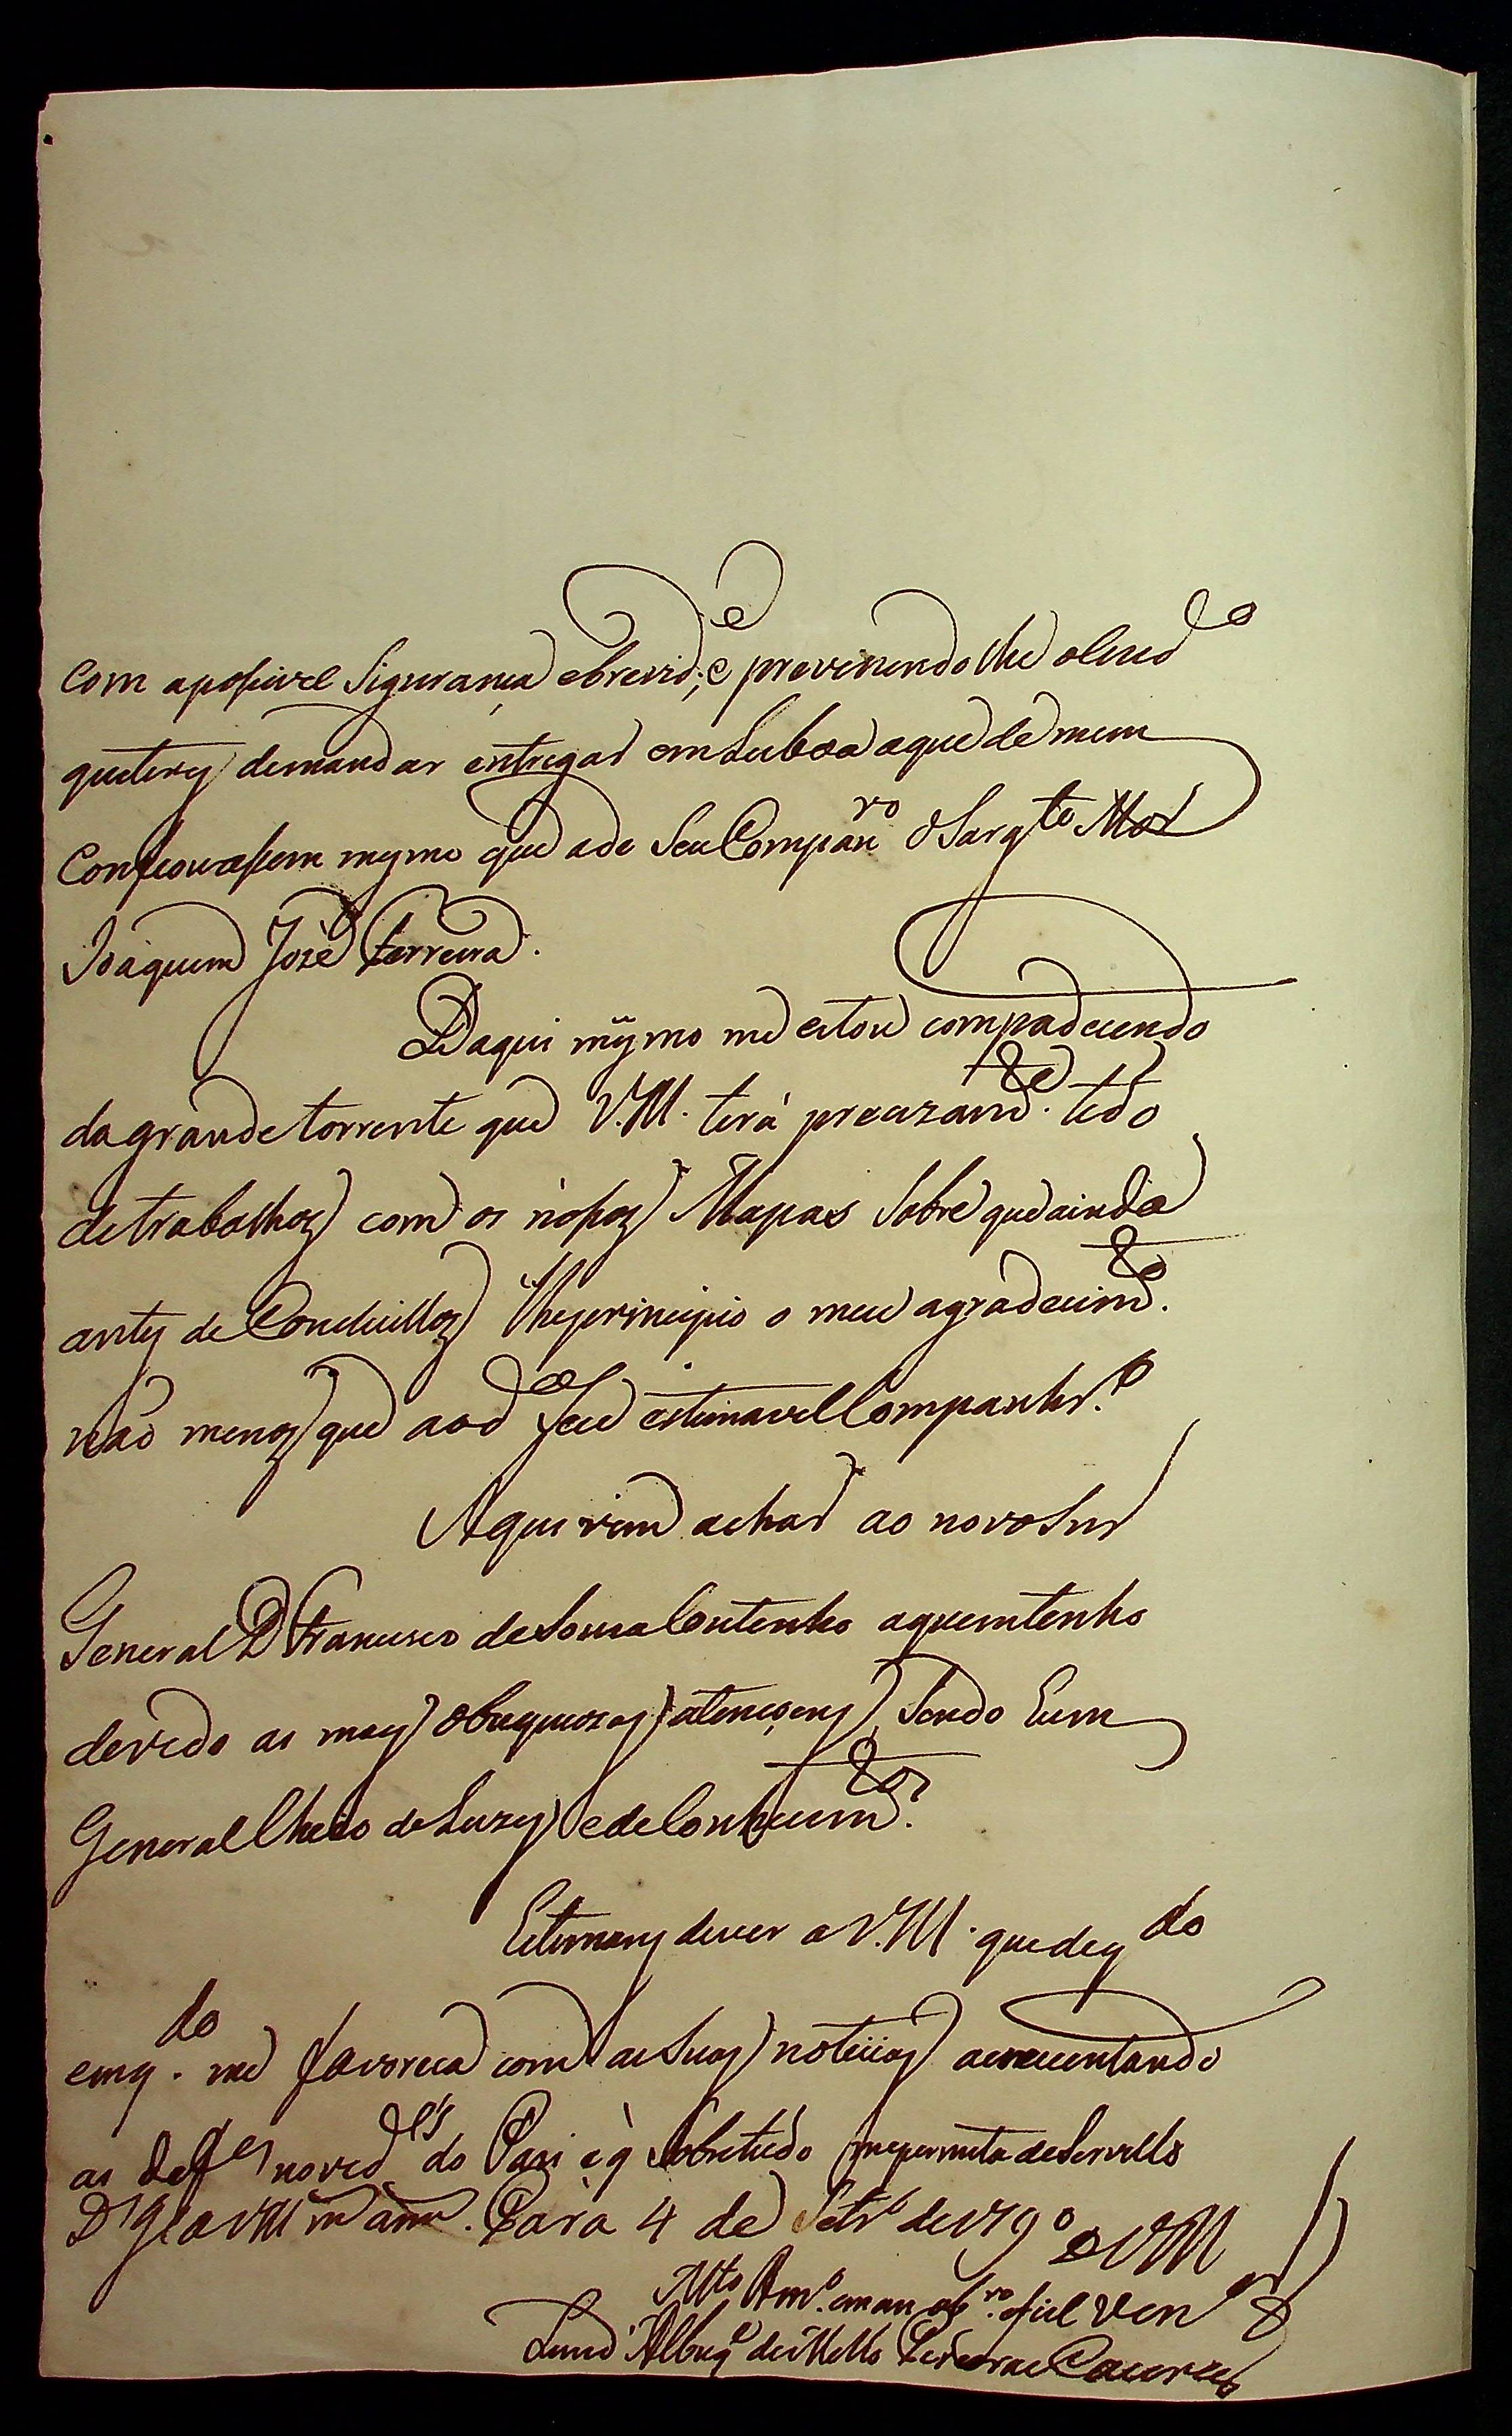 com aposivel Sigurança ebrevid.e; e prevenindo lhe olucro
que terey demandar entregar em Lisboa aque de mim
Confiou assem mesmo que ade Seu Companro o Sargto Mor
Joaquim José Ferreira.
Daqui mesmo me estou compadecendo
da grande torrente que V.M. terá prezando.te tido
de trabalhos com os nosos Mapas Sobre que ainda
antes de Concluillos lhe principio o meu agradecimto.
não menos que aod Seu estimavel Companhro
Aqui vim achar ao novo Snr
General D Francisco de Souza Coutinho aquem tenho
devido as mays Obsequiozas atençoens, Sendo hum
General Cheio de Luzes ede Conhecimtos.
Estimarey dever a V.M. que de qdo
em qdo me favoreça com as Suas noticias acrecentando
as de novides do Pais e q Sobretudo me permita de Servillo
Ds Gde a VM ms anns. Pará 4 de Setro de 1790 De VM
Mto Amo. fiel Venor
Luis d'Albuqe de Mello Pereira e Caceres